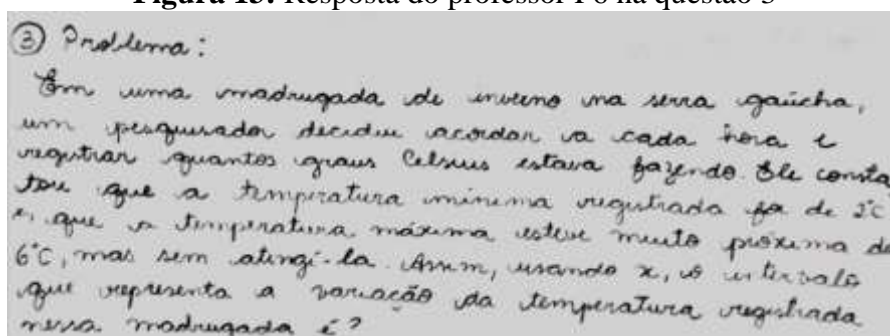 Figura 15: Resposta do professor P6 na questão 3
③ Problema:
Em uma madrugada de inverno na serra gaúcha,
um pesquisador decidiu acordar a cada hora e
registrar quantos graus Celsius estava fazendo. Ele consta
tou que a temperatura mínima registrada foi de 2°C
e, que a temperatura máxima esteve muito próxima de
6°C, mas sem atingi-la. Assim, usando x, o intervalo
que representa a variação da temperatura registrada
nessa madrugada é?